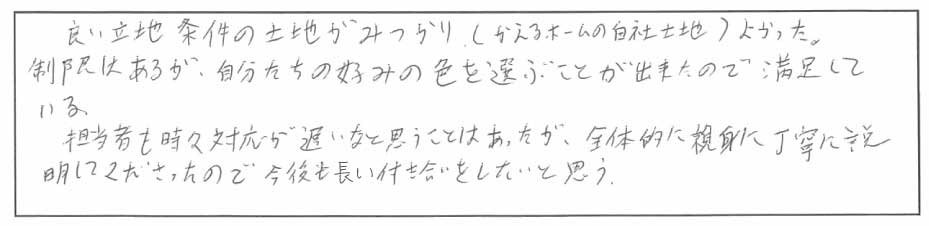 良い立地条件の土地がみつかり、(かえるホームの自社土地)よかった。
制限はあるが、自分たちの好みの色を選ぶことが出来たので満足して
いる。
担当者も時々対応が遅いなと思うことはあったが、全体的に親身に丁寧に説
明してくださったので今後も長い付き合いをしたいと思う。